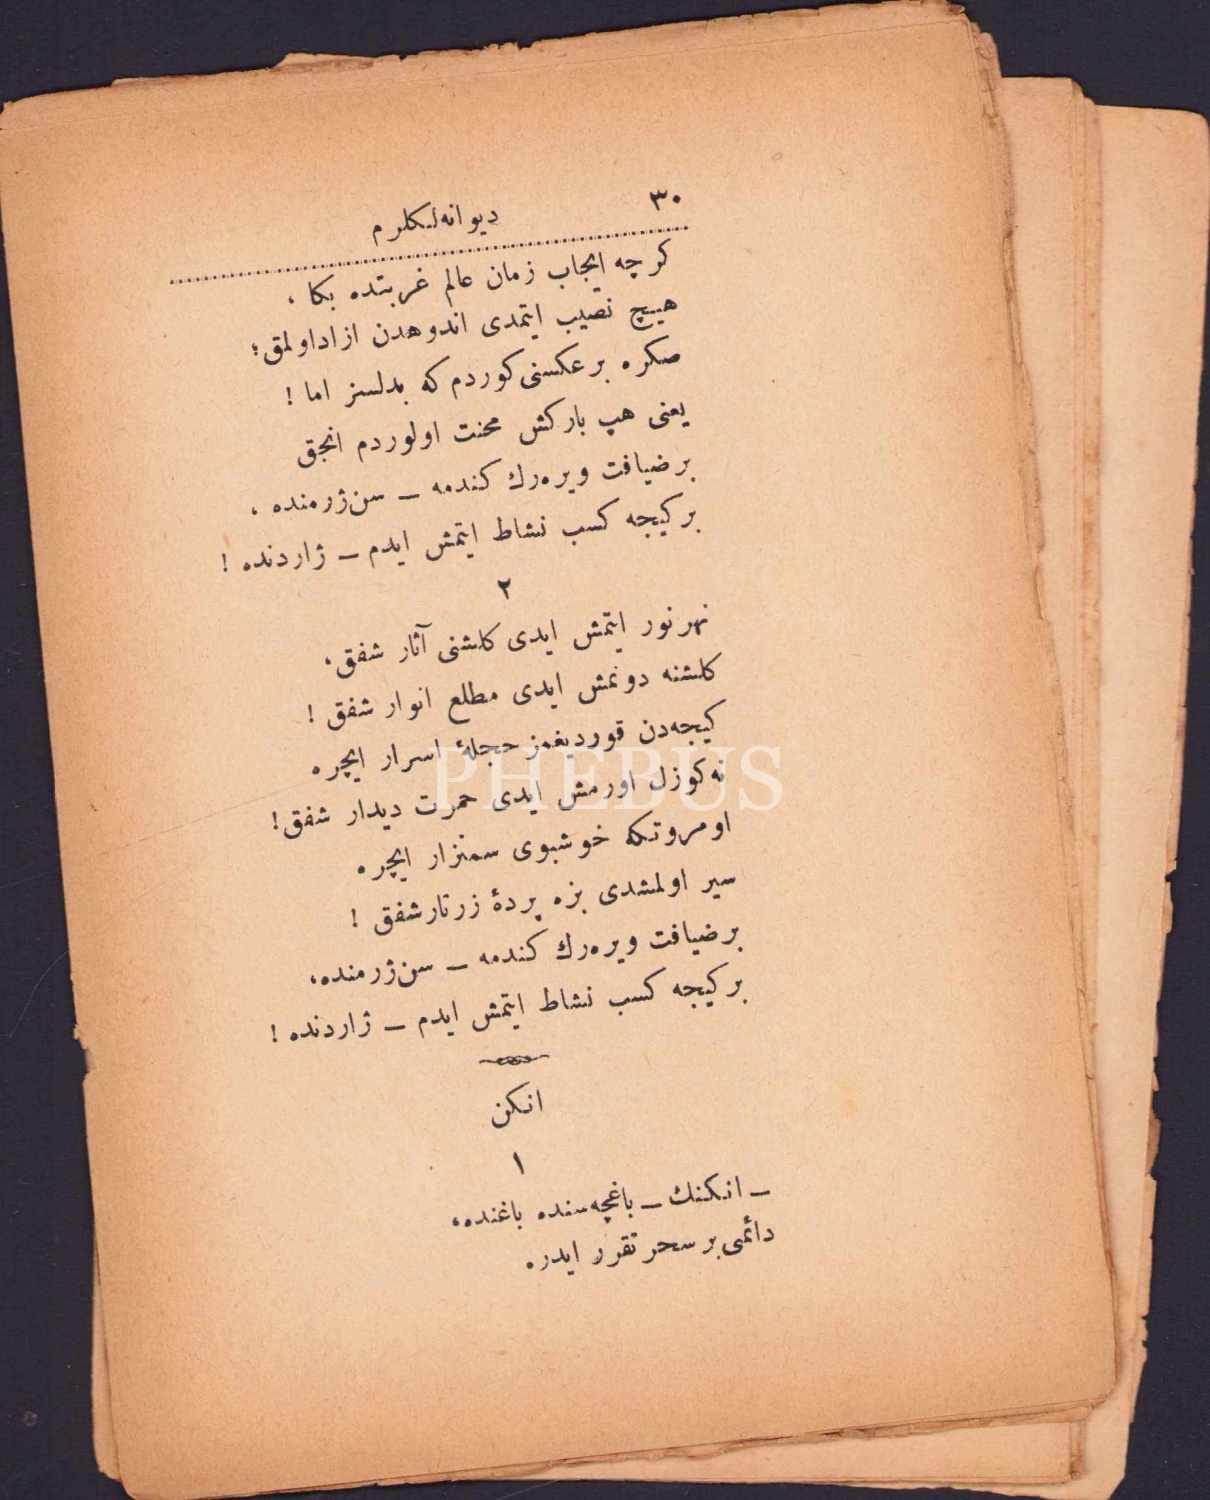 ٣٠
دیوانه‌لكلرم
كرچه ایجاب زمان عالم غربتده بكا ،
هیچ نصیب ایتمدی اندوهدن ازاد اولمق؛
صكره بر عكسنی كوردم كه بدلسز اما !
یعنی هپ باركش محنت اولوردم انجق
بر ضیافت ویره‌رك كندمه — سن ژرمنده ،
بر كیجه كسب نشاط ایتمش ایدم — ژاردنده !
٢
نهر نور ایتمش ایدی كلشنی آثار شفق،
كلشنه دونمش ایدی مطلع انوار شفق !
كیجه‌دن قوردیغمز حجلهٔ اسرار ایچره
نه كوزل اورمش ایدی حمرت دیدار شفق!
او مروتكه خوشبوی سمنزار ایچره
سیر اولمشدی بزه پردهٔ زرتار شفق !
بر ضیافت ویره‌رك كندمه — سن ژرمنده،
بر كیجه كسب نشاط ایتمش ایدم — ژاردنده !
انكن
١
— انكنك — باغچه‌سنده باغنده،
دائمی بر سحر تقرر ایدر.
PHEBUS